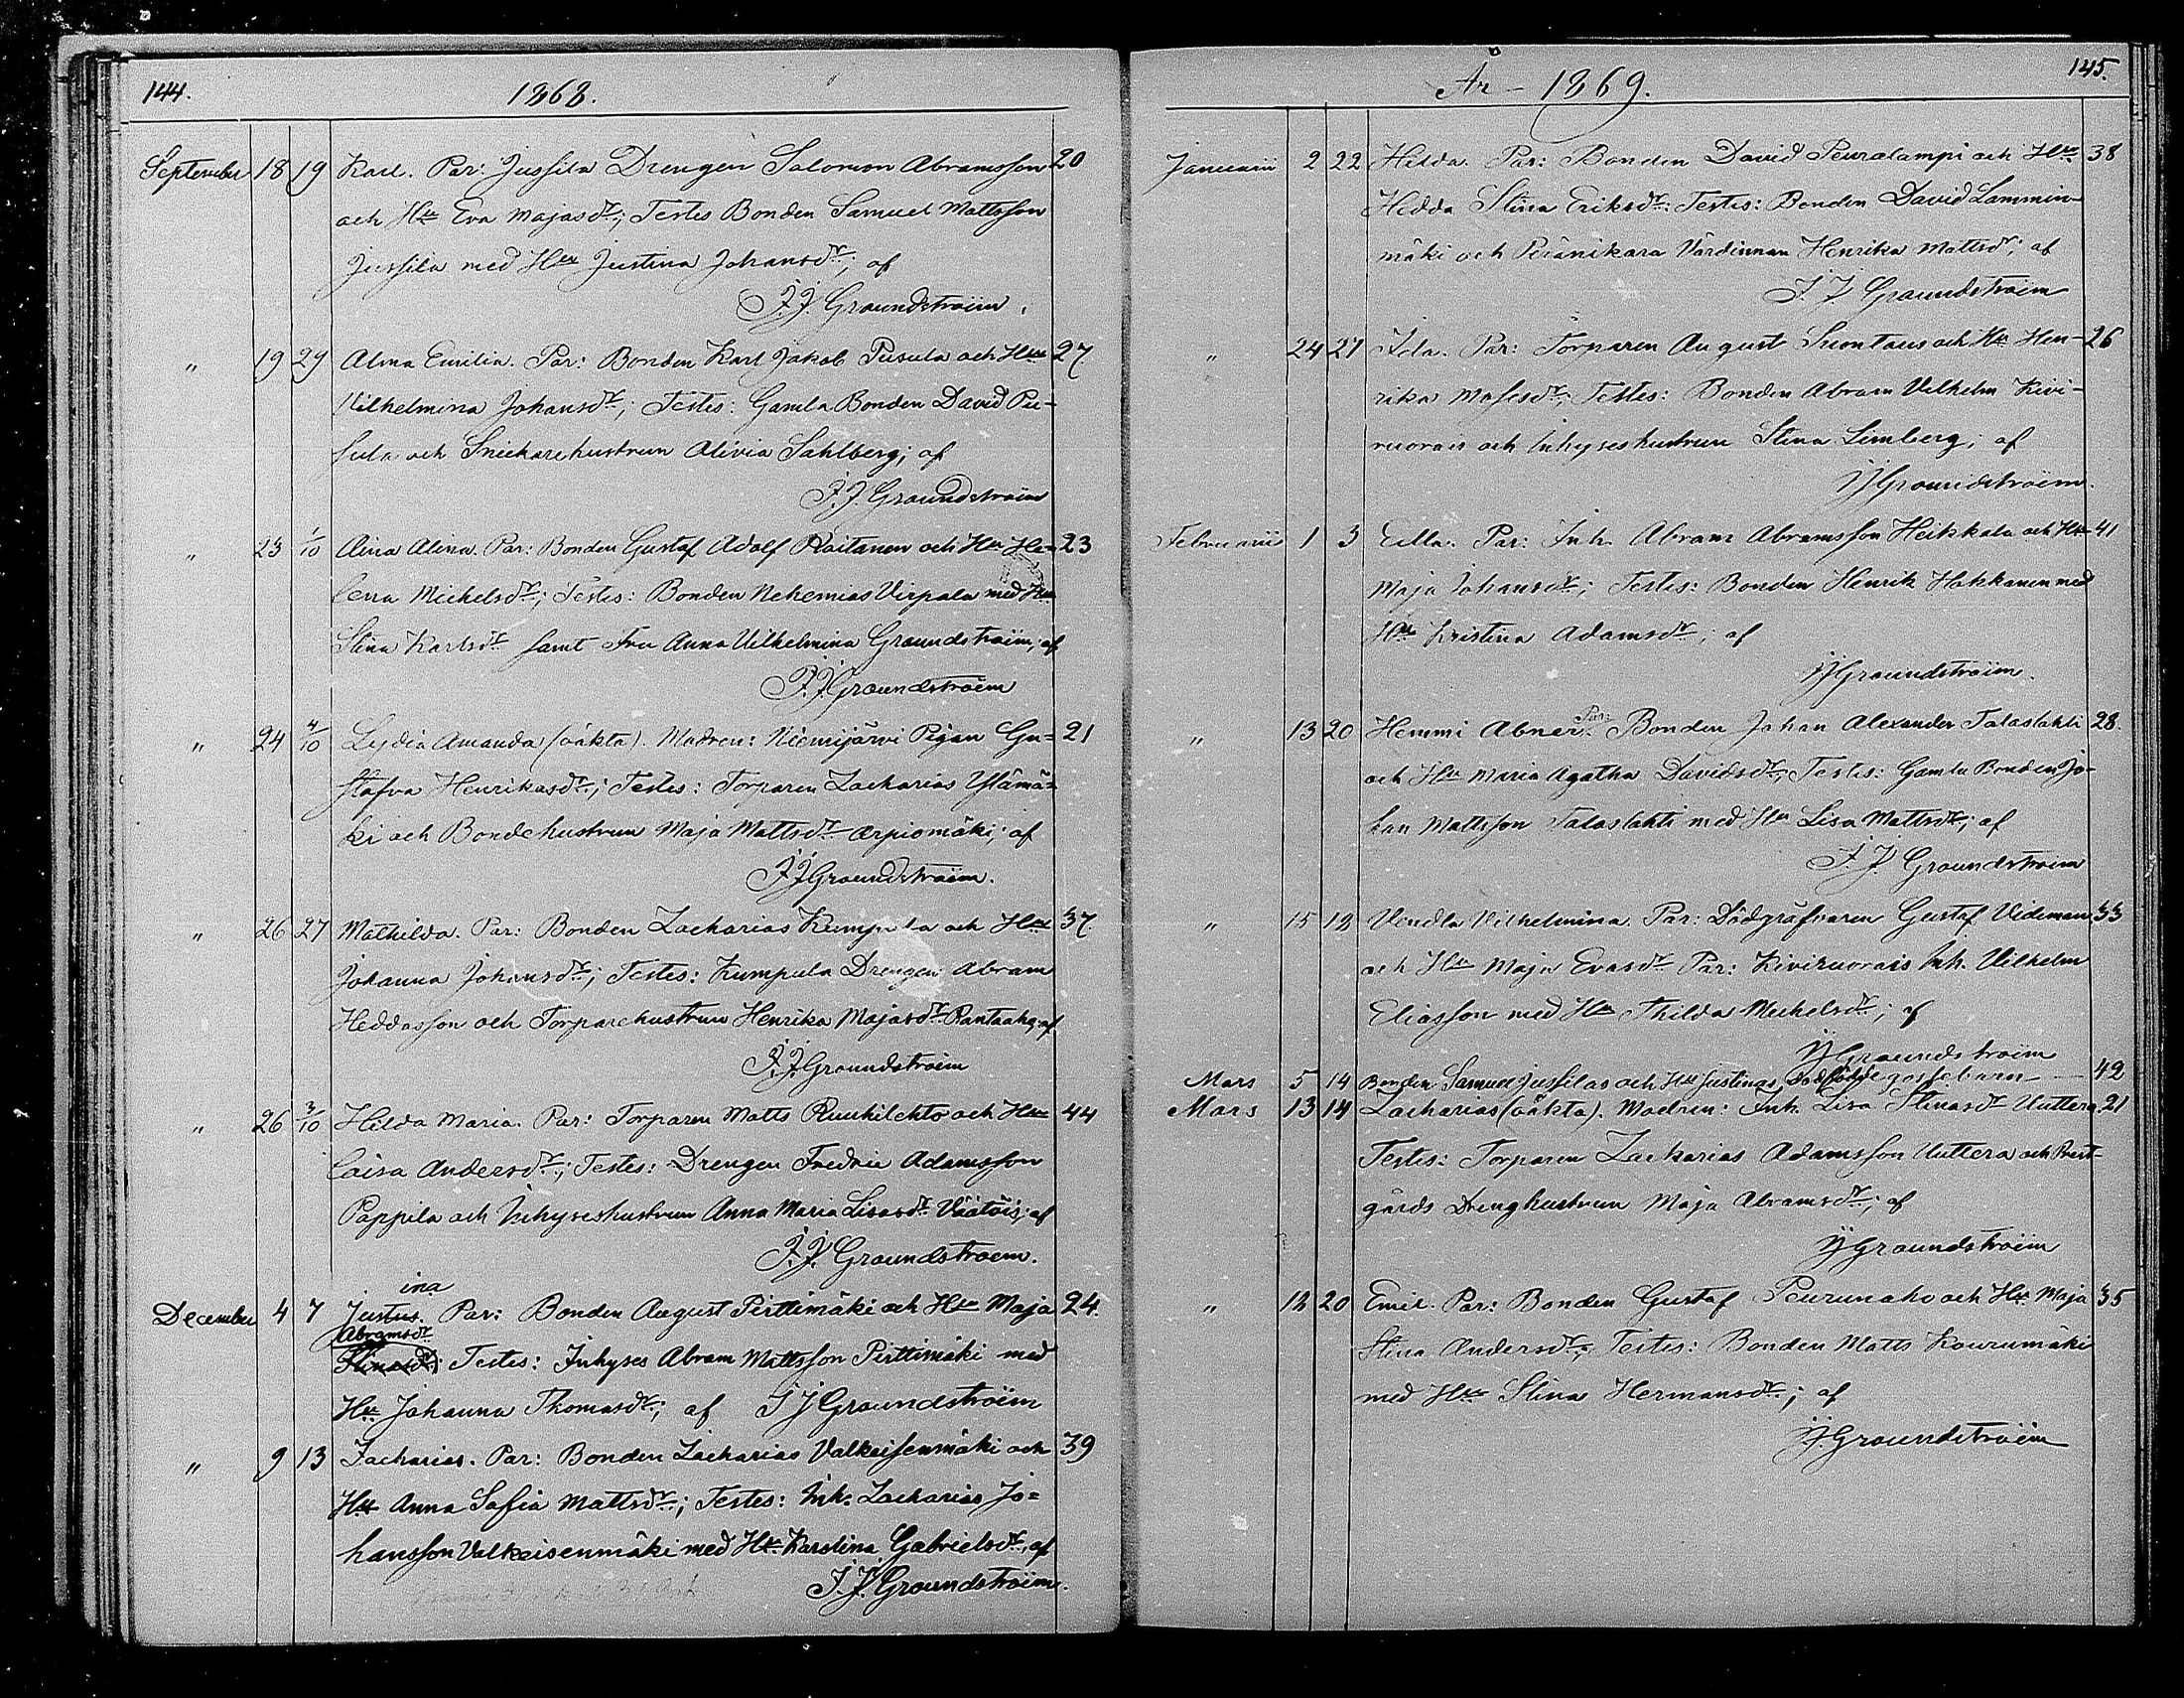 144.
1868.
September 18 19 Karl. Par: Jussila Drengen Salomon Abramsson 20
och Hu Eva Majasdr; Testes Bonden Samuel Mattsson
Jussila med Hu Justina Johansdr; af
F. J. Groundstroëm.
" 19 29 Alma Emilia. Par: Bonden Karl Jakob Pusula och Hu 27
Vilhelmina Johansdr; Testes: Gamla Bonden David Pu-
sula och Snickarehustrun Alivia Sahlberg; af
F. J. Groundstroëm
" 23 1/10 Aina Alina. Par: Bonden Gustaf Adolf Raitanen och Hu He- 23
lena Michelsdr; Testes: Bonden Nehemias Virpala med Hu
Stina Karlsdr samt Fru Anna Vilhelmina Groundstroëm; af
F. J. Groundstroëm
" 24 4/10 Lydia Amanda (oäkta). Modren: Niemijärvi Pigan Gu= 21
stafva Henrikasdr; Testes: Torparen Zacharias Ylämä=
ki och Bondehustrun Maja Mattsdr Arpiomäki; af
F. J. Groundstroëm.
" 26 27 Mathilda. Par: Bonden Zacharias Kumpula och Hu 37.
Johanna Johansdr; Testes: Kumpula Drengen Abram
Heddasson och Torparehustrun Henrika Majasdr Rantaaho; af
F. J. Groundstroëm
" 26 3/10 Hilda Maria. Par: Torparen Matts Ruuhilehto och Hu 44
Caisa Andersdr; Testes: Drengen Fredric Adamsson
Pappila och Inhyseshustrun Anna Maria Lisasdr Väätöis; af
F. J. Groundstroem.
ina
December 4 7 Justus. Par: Bonden August Pirttimäki och Hu Maja 24.
Abramsdr
Stinasdr; Testes: Inhyses Abram Mattsson Pirttimäki med
Hu Johanna Thomasdr; af F J Groundstroëm
" 9 13 Zacharias. Par: Bonden Zacharias Valkeisenmäki och 39
Hu Anna Sofia Mattsdr; Testes: Inh. Zacharias Jo=
hansson Valkeisenmäki med Hu Karolina Gabrielsdr, af
F. J. Groundstroëm.
145.
År - 1869.
Januarii 2 22 Hilda. Par: Bonden David Peuralampi och Hu 38
Hedda Stina Eriksdr; Testes: Bonden David Lammin-
mäki och Peränikara Värdinnan Henrika Mattsdr; af
F. J Groundstroëm
" 24 27 Ida. Par: Torparen August Suontaus och Hu Hen- 26
rika Mosesdr; Testes: Bonden Abram Vilhelm Kivi-
ruorais och Inhyseshustrun Stina Limberg; af
FJ Groundstroëm.
Februarii 1 3 Eilla. Par: Inh. Abram Abramsson Heikkala och Hu 41
Maja Johansdr; Testes: Bonden Henrik Hakkanen med
Hu Kristina Adamsdr; af
FJ Groundstroëm.
Par:
" 13 20 Hemmi Abner. Bonden Johan Alexander Talaslahti 28.
och Hu Maria Agatha Davidsdr; Testes: Gamla Bonden Jo-
han Mattsson Talaslahti med Hu Lisa Mattsdr; af
F. J. Groundstroëm
" 15 18 Vendla Vilhelmina. Par: Dödgräfvaren Gustaf Videman 33
och Hu Maja Evasdr Par: Kiviruorais Inh. Vilhelm
Eliasson med Hu Thilda Michelsdr; af
FJ Groundstroëm
Mars 5 14 Bonden Samuel Jussilas och Hu Justinas dödfödde gossebarn — 42
Mars 13 14 Zacharias (oäkta). Modren: Inh. Lisa Stinasdr Uuttera. 21
Testes: Torparen Zacharias Adamsson Uuttera och Prest-
gårds Drenghustrun Maja Abramsdr; af
FJ Groundstroëm
" 18 20 Emil. Par: Bonden Gustaf Peurunaho och Hu Maja 35
Stina Andersdr; Testes: Bonden Matts Kourumäki
med Hu Stina Hermansdr; af
FJ. Groundstroëm